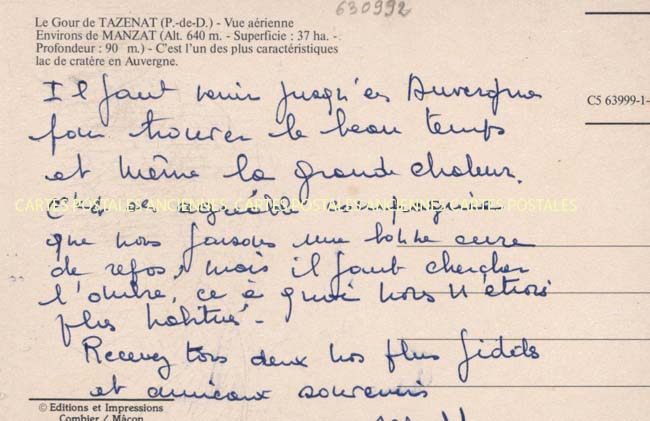 630992
Le Gour de TAZENAT (P.-de-D.) - Vue aérienne
Environs de MANZAT (Alt. 640 m. - Superficie : 37 ha. -
Profondeur : 90 m.) - C'est l'un des plus caractéristiques
lac de cratère en Auvergne.
C5 63999-1-
Il faut venir jusqu'en Auvergne
pour trouver le beau temps
et même la grande chaleur.
C'est agréable
CARTES POSTALES ANCIENNES CARTES POSTALES ANCIENNES CARTES POSTALES
que nous faisons une bonne cure
de repos, mais il faut chercher
l'ombre, ce à quoi nous n'étions
plus habitués -
Recevez tous deux nos plus fidèles
et amicaux souvenirs
© Editions et Impressions
Combier / Mâcon